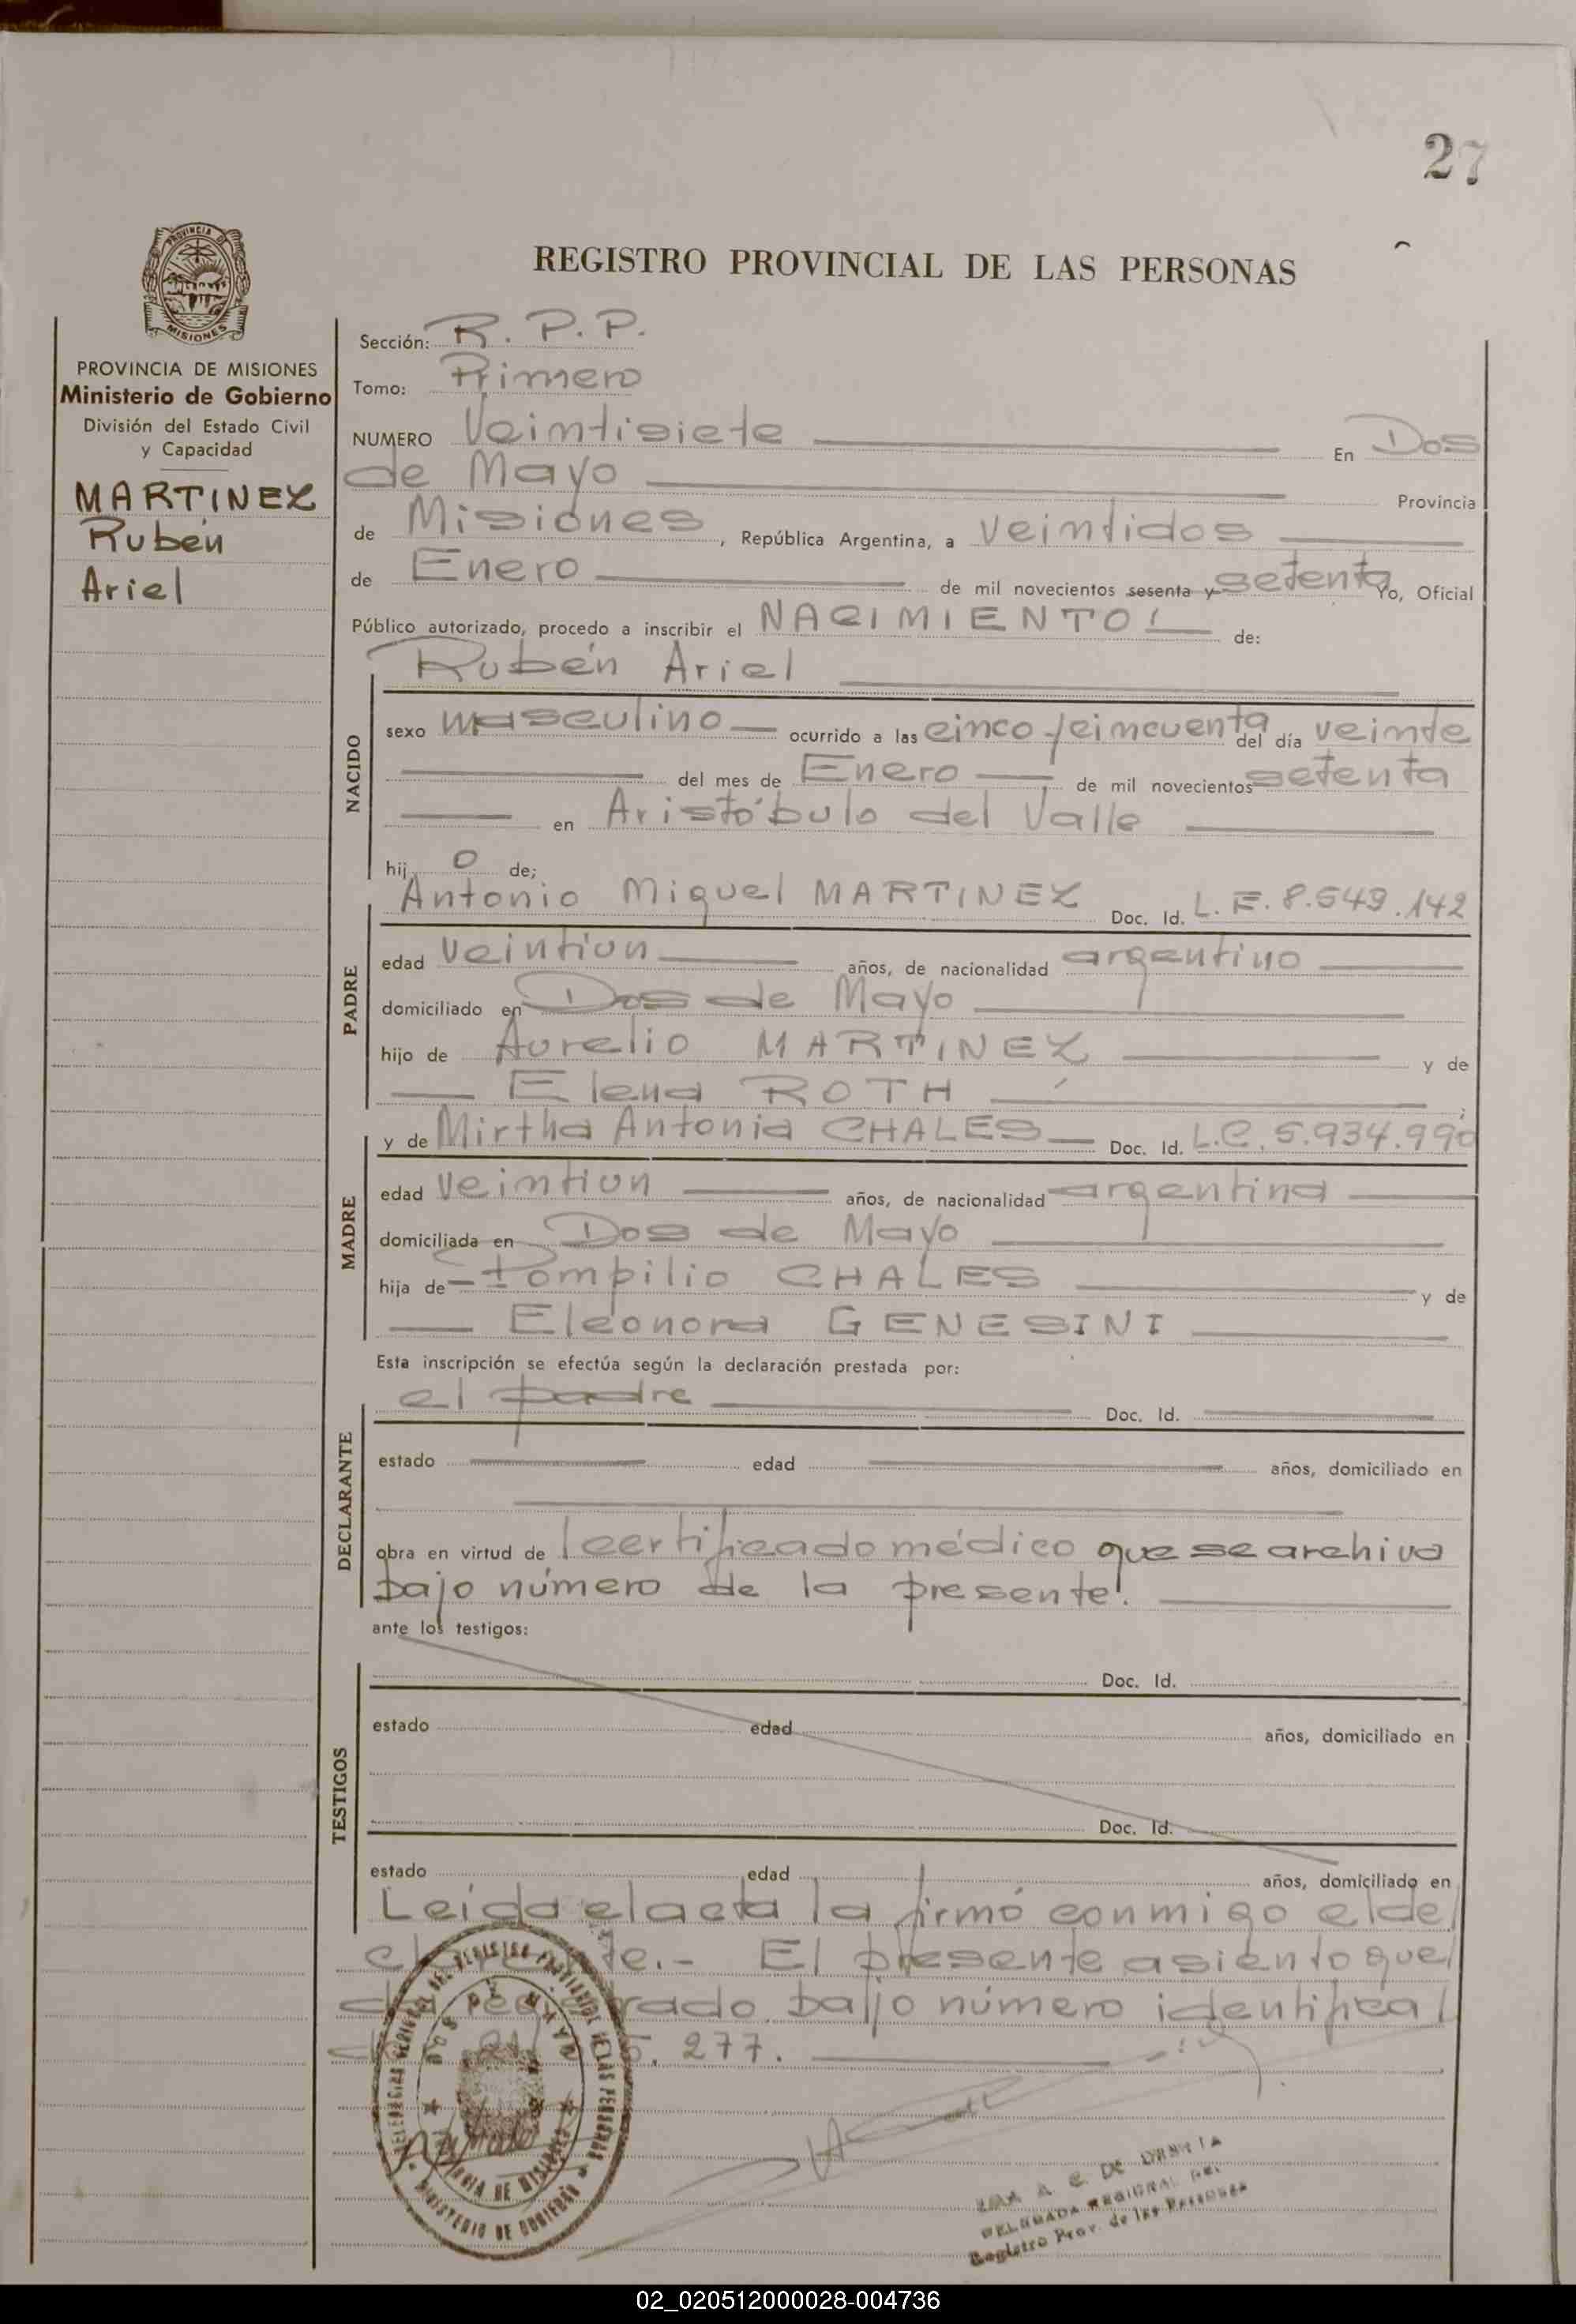 27
REGISTRO PROVINCIAL DE LAS PERSONAS
PROVINCIA DE
MISIONES
PROVINCIA DE MISIONES
Ministerio de Gobierno
División del Estado Civil
y Capacidad
MARTINEZ
Rubén
Ariel
Sección: R. P. P.
Tomo: Primero
NUMERO Veintisiete En Dos
de Mayo Provincia
de Misiones, República Argentina, a veintidos
de Enero de mil novecientos sesenta y setenta Yo, Oficial
Público autorizado, procedo a inscribir el NACIMIENTO de:
Rubén Ariel
NACIDO
sexo masculino ocurrido a las cinco /cincuenta del día veinte
del mes de Enero de mil novecientos setenta
en Aristóbulo del Valle
hij o de;
PADRE
Antonio Miguel MARTINEZ Doc. Id. L. E. 8.549.142
edad veintiun años, de nacionalidad argentino
domiciliado en Dos de Mayo
hijo de Aurelio MARTINEZ y de
Elena ROTH
MADRE
y de Mirtha Antonia CHALES Doc. Id. L.C. 5.934.990
edad veintiun años, de nacionalidad argentina
domiciliada en Dos de Mayo
hija de Pompilio CHALES y de
Eleonora GENESINI
Esta inscripción se efectúa según la declaración prestada por:
DECLARANTE
el padre Doc. Id.
estado edad años, domiciliado en
obra en virtud de certificado médico que se archiva
bajo número de la presente.
ante los testigos:
TESTIGOS
Doc. Id.
estado edad años, domiciliado en
Doc. Id.
estado edad años, domiciliado en
Leída el acta la firmó conmigo el de
te.- El presente asiento que
rado bajo número identifica
277.
DOS DE MAYO
PROVINCIA DE MISIONES
MINISTERIO DE GOBIERNO
DELEGADA REGIONAL DEL
Registro Prov. de las Personas
02_020512000028-004736